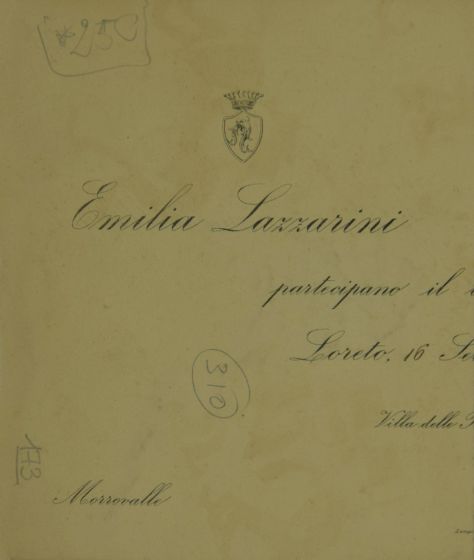 *250
Emilia Lazzarini
partecipano il
Loreto, 16
310
Villa delle
173
Morrovalle